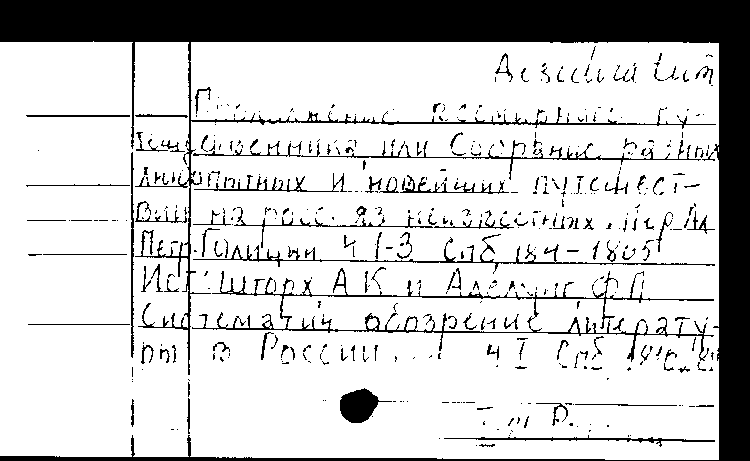 Продолжение всемирного пу-
тешественника или Собрание разных
любопытных и новейших путешест-
вий на росс. яз неизвестных. Пер Ал
Петр. Голицын ч 1-3 Спб, 184-1805
Ист: Шторх А К и Аделунг Ф П
Систематич обозрение литерату-
ры в России... ч I Спб